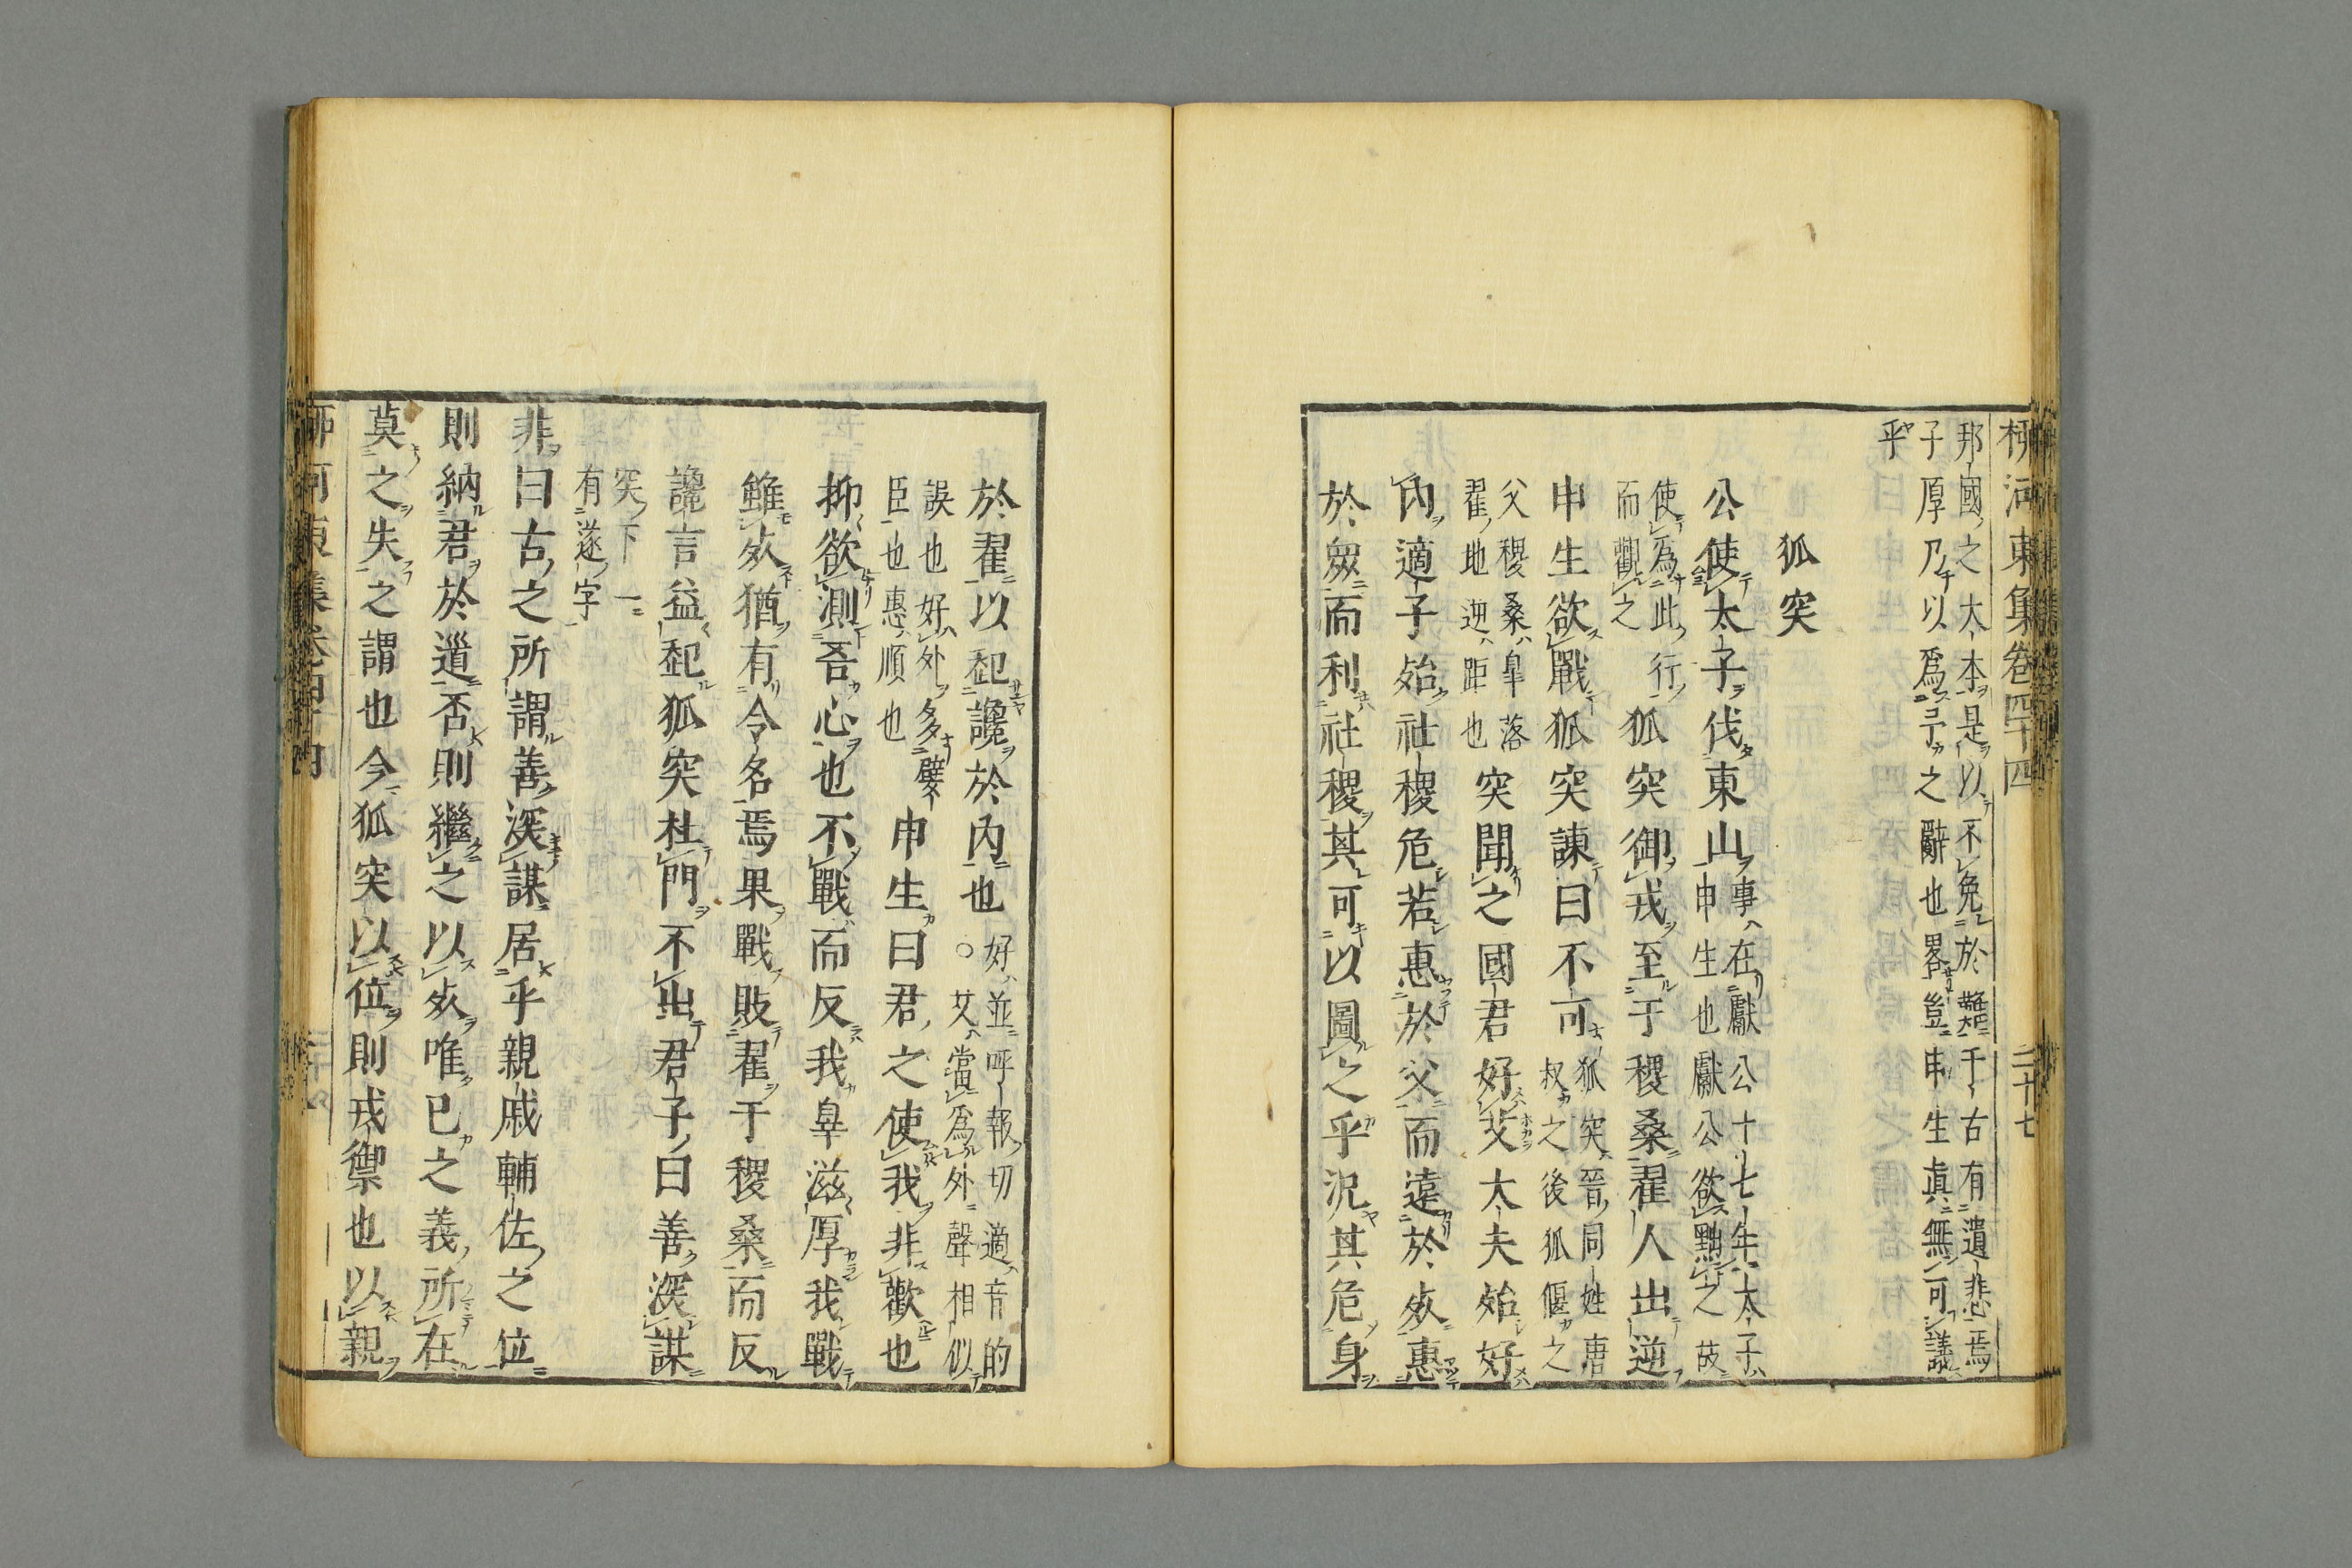 柳河東集卷四十四 二十七
邦國之大本是以不免於難千古有遺悲焉
子厚乃以爲予之辭也畧豈申生眞無可議
乎
狐突
公使太子伐東山事在獻公十七年太子
申生也獻公欲黜之故
使爲此行
而觀之狐突御戎至于稷桑翟人出逆
申生欲戰狐突諫曰不可狐突晉同姓唐
叔之後狐偃之
父稷桑皐落
翟地逆距也突聞之國君好艾大夫殆好
內適子殆社稷危若惠於父而遠於死惠
於衆而利社稷其可以圖之乎況其危身
於翟以起讒於內也好並呼報切適音的
○艾當爲外聲相似
誤也好外多嬖
臣也惠順也申生曰君之使我非歡也
抑欲測吾心也不戰而反我辠滋厚我戰
雖死猶有令名焉果戰敗翟于稷桑而反
讒言益起狐突杜門不出君子曰善深謀
突下一
有遂字
非曰古之所謂善深謀居乎親戚輔佐之位
則納君於道否則繼之以死唯已之義所在
莫之失之謂也今狐突以位則戎禦也以親
柳河東集卷四十四